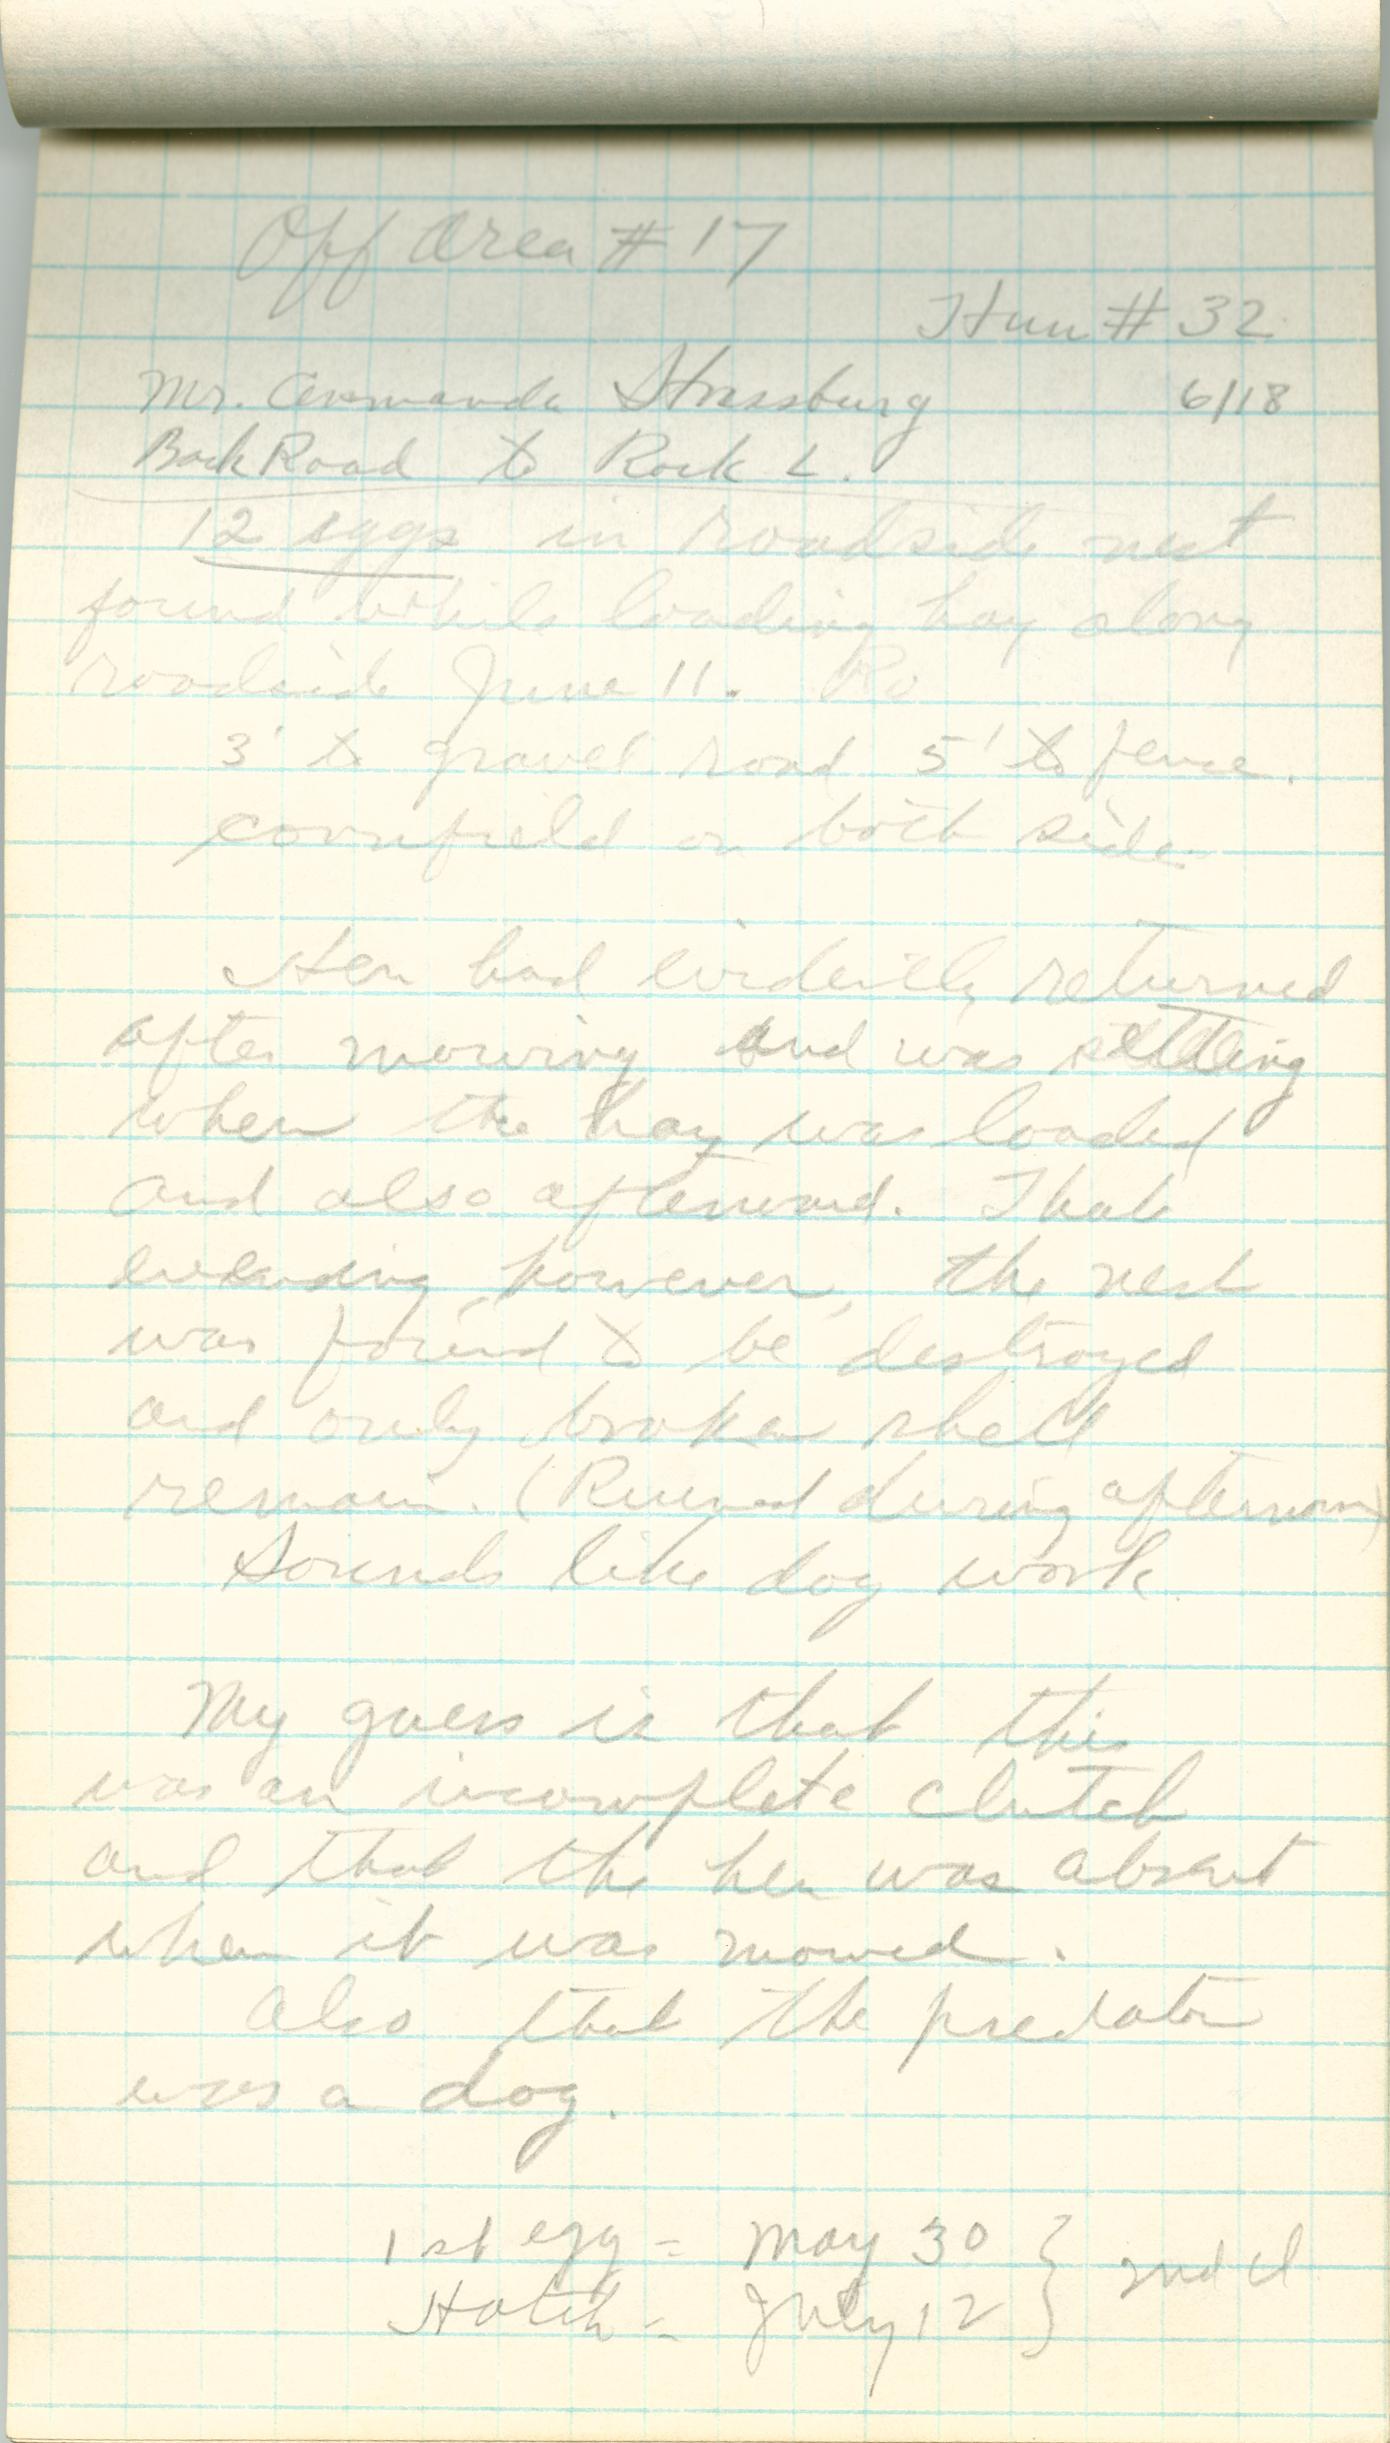 Off Area # 17
Hun # 32
Mr. Armanda Strassburg 6/18
Back Road to Rock L.
12 eggs in roadside nest
found while loading hay along
roadside June 11. Ro
3' to gravel road 5' to fence.
cornfield on both side.
Hen had evidently returned
after mowing and was setting
when the hay was loaded
and also afterward. That
evening however, the nest
was found to be destroyed
and only broken shell
remain. (Ruined during afternoon)
Sounds like dog work.
My guess is that this
was an incomplete clutch
and that the hen was absent
when it was mowed.
Also that the predator
was a dog.
1st egg = May 30 } 2nd cl
Hatch = July 12